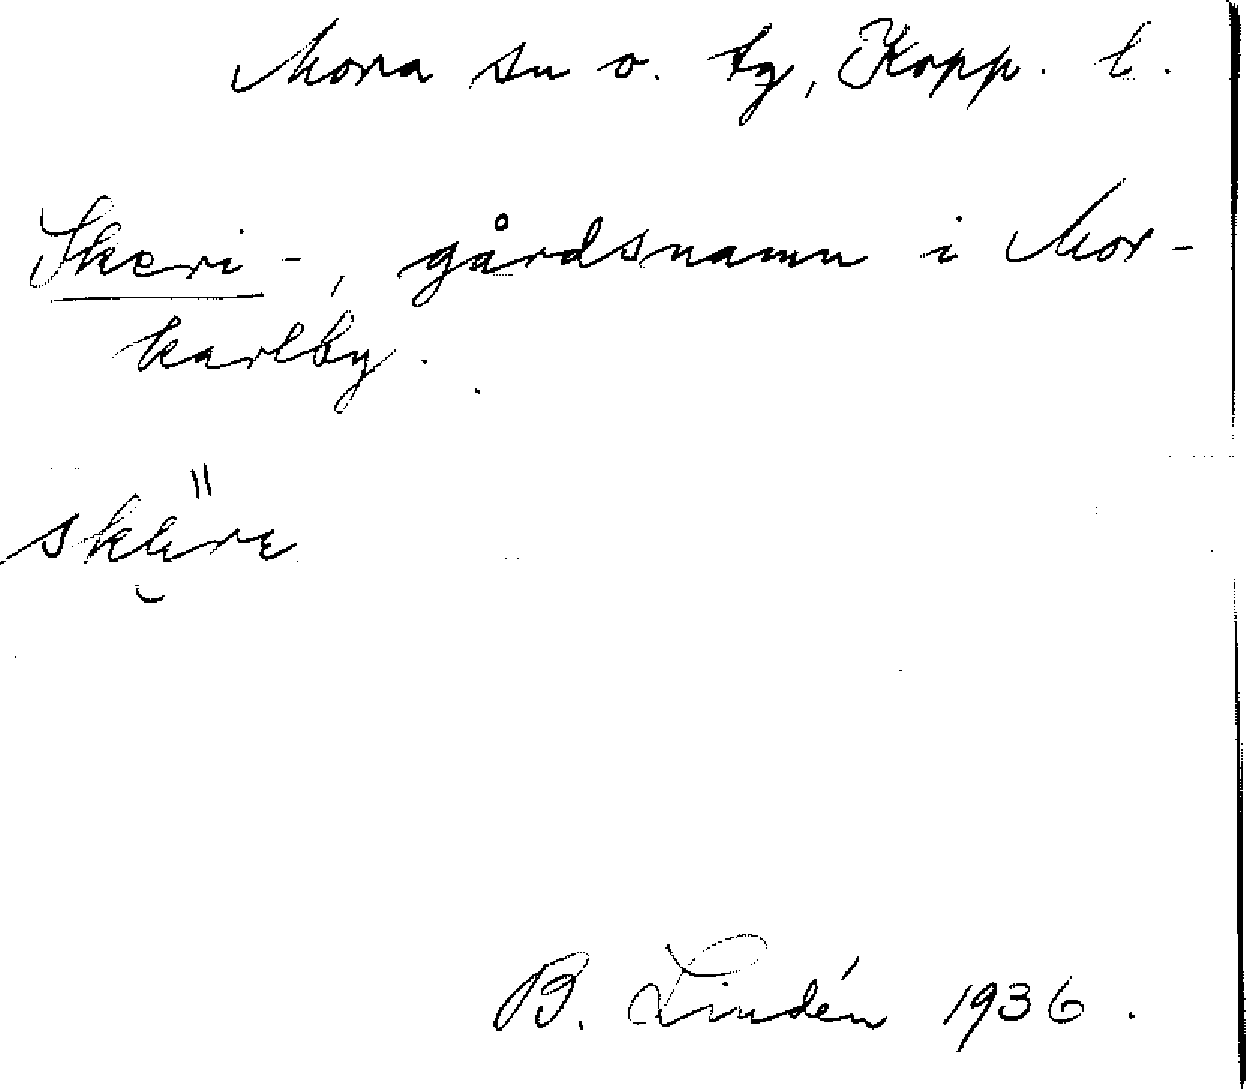 Mora sn o. tg, Kopp. l.
Skeri-, gårdsnamn i Mor-
karlby.
B. Lindén 1936.